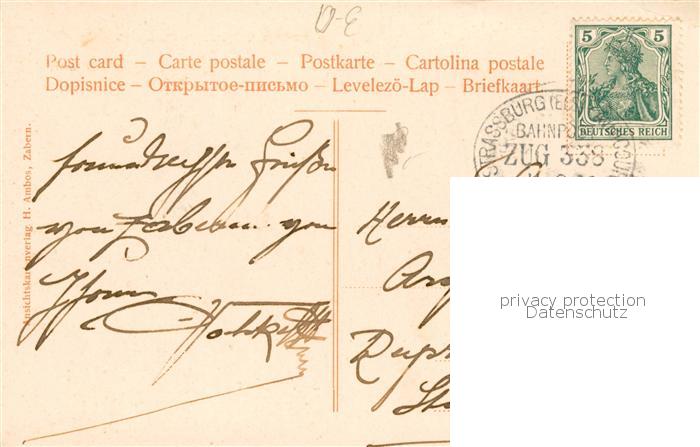 D-E
Post card – Carte postale – Postkarte – Cartolina postale
Dopisnice – Открытое-письмо – Levelező-Lap – Briefkaart
5 5
DEUTSCHES REICH
STRASSBURG (E
BAHNPO
ZUG 338
Ansichtskartenverlag H. Ambos, Zabern.
freundlichste Grüße
von Zabern von
Ihrem
Herrn
privacy protection
Datenschutz